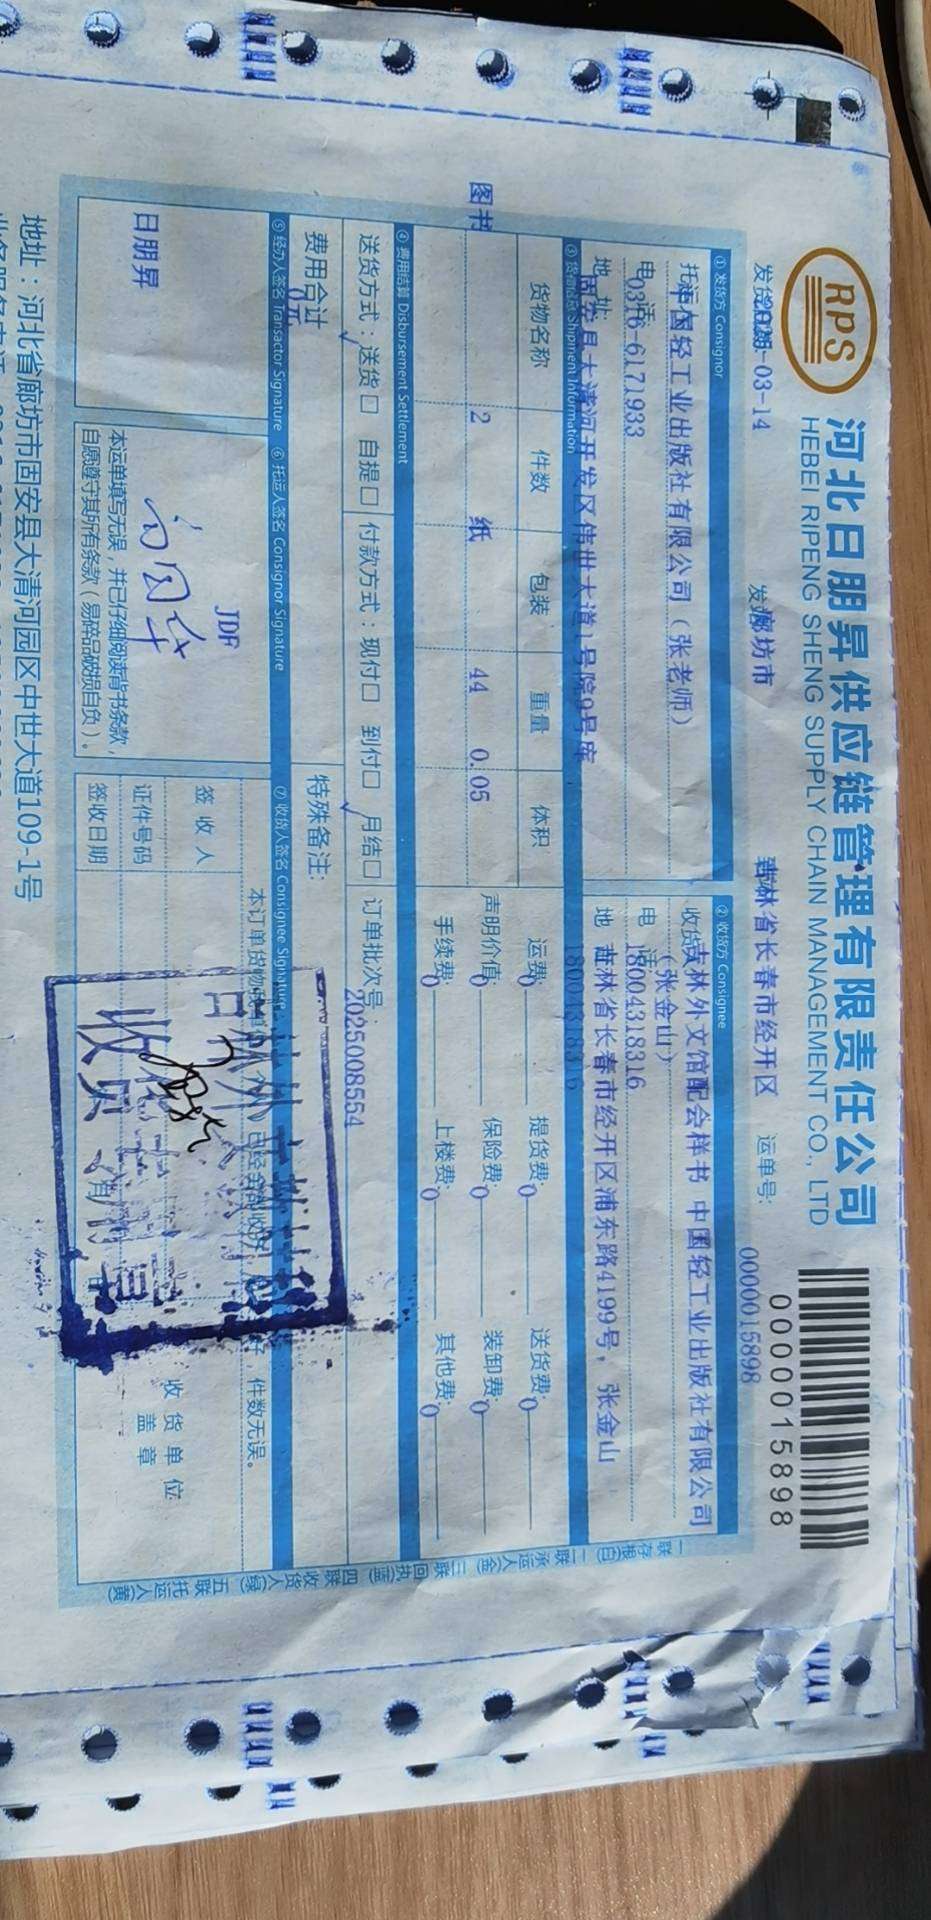 RPS
河北日朋昇供应链管理有限责任公司
HEBEI RIPENG SHENG SUPPLY CHAIN MANAGEMENT CO., LTD
0000015898
2025-03-14
廊坊市
吉林省长春市经开区
运单号:
0000015898
① 发货方 Consignor
② 收货方 Consignee
中国轻工业出版社有限公司（张老师）
吉林外文馆配会样书 中国轻工业出版社有限公司
（张金山）
0316-6171933
18004318316
地 址
固安县大清河开发区伟世大道1号院9号库
吉林省长春市经开区浦东路4199号，张金山
③ 货物信息 Shipment Information
18004318316
货物名称
件数
包装
重量
体积
运费:0
提货费:0
送货费:0
图书
2
纸
44
0.05
声明价值:0
保险费:0
装卸费:0
手续费:0
上楼费:0
其他费:0
④ 费用结算 Disbursement Settlement
送货方式：送货□ 自提□
付款方式：现付□ 到付□ 月结□
订单批次号:
2025008554
费用合计
0元
特殊备注:
⑤ 经办人签名 Transactor Signature
⑥ 托运人签名 Consignor Signature
⑦ 收货人签名 Consignee Signature
日朋昇
JDF
件数无误。
签 收 人
证件号码
签收日期
收 货 单 位
盖 章
本运单填写无误，并已仔细阅读背书条款，
自愿遵守其所有条款（易碎品破损自负）。
一联 存根(白) 二联 承运人(金) 三联 回执(蓝) 四联 收货人(绿) 五联 托运人(黄)
地址：河北省廊坊市固安县大清河园区中世大道109-1号